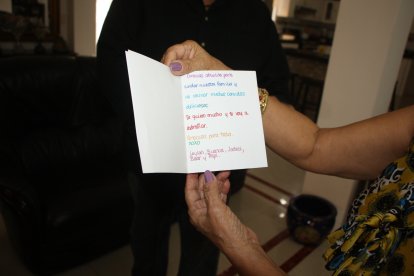 Gracias abuelita por
cuidar nuestra familia y
de cocinar muchas comidas
deliciosas.
Te quiero mucho y te voy a
admirar.
Gracias por todo.
XOXO